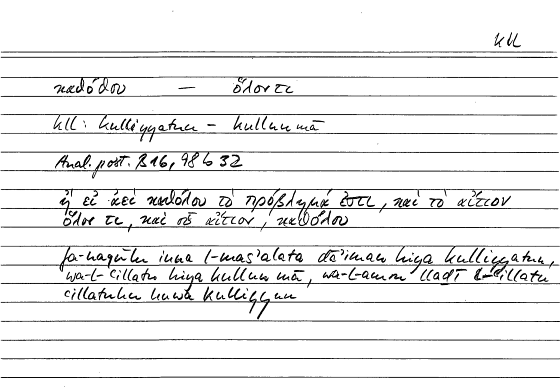 kll
καθόλου — ὅλον τι
kll: kulliyyatun – kullun mā
Anal. post. B 16, 98 b 32
ἢ εἰ ἀεὶ καθόλου τὸ πρόβλημά ἐστι, καὶ τὸ αἴτιον
ὅλον τι, καὶ οὗ αἴτιον, καθόλου
fa-naqūlu inna l-mas'alata dā'iman hiya kulliyyatun,
wa-l-ʿillatu hiya kullun mā, wa-l-amru lladī l-ʿillatu
ʿillatuhu huwa kulliyyun